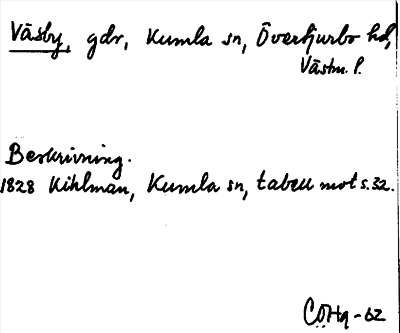 Väsby, gdr, Kumla sn, Övertjurbo hd,
Västm. l.
Beskrivning.
1828 Kihlman, Kumla sn, tabell mot s. 32.
CÖHq -62